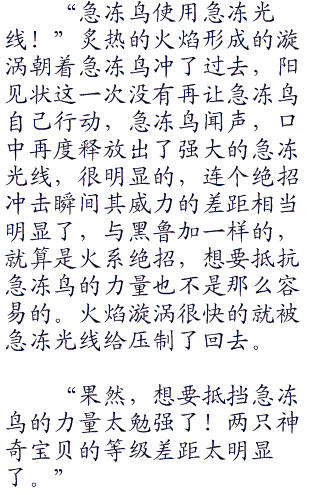 “急冻鸟使用急冻光
线！”炙热的火焰形成的漩
涡朝着急冻鸟冲了过去，阳
见状这一次没有再让急冻鸟
自己行动，急冻鸟闻声，口
中再度释放出了强大的急冻
光线，很明显的，连个绝招
冲击瞬间其威力的差距相当
明显了，与黑鲁加一样的，
就算是火系绝招，想要抵抗
急冻鸟的力量也不是那么容
易的。火焰漩涡很快的就被
急冻光线给压制了回去。
“果然，想要抵挡急冻
鸟的力量太勉强了！两只神
奇宝贝的等级差距太明显
了。”